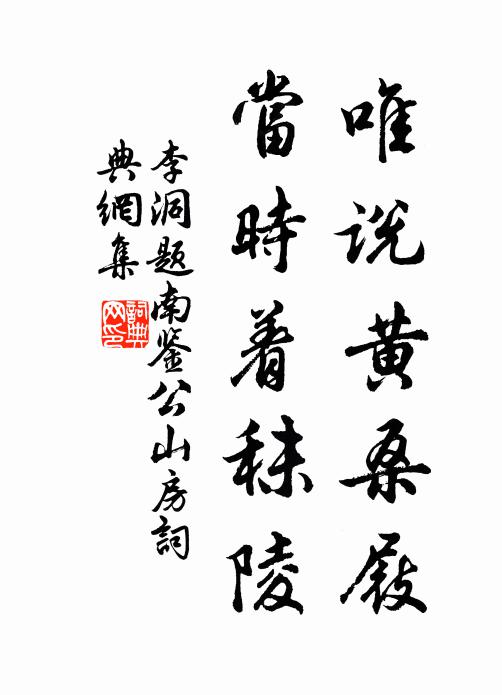 唯說黄桑屐
當時着秣陵
李洞題南鉴公山房詞
典網集
詞典网印